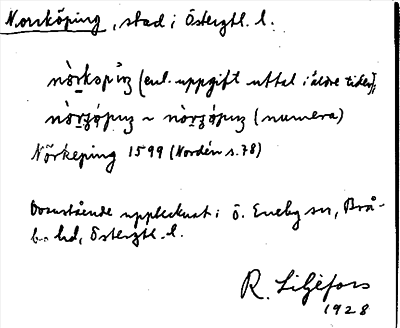 Norrköping, stad i Östergtl. l.
nò̀rkopiŋ (enl. uppgift uttal i äldre tider);
~ (numera)
Nörkeping 1599 (Nordén s. 78)
Ovanstående upptecknat i Ö. Eneby sn, Brå-
bo hd, Östergtl. l.
R. Liljefors
1928